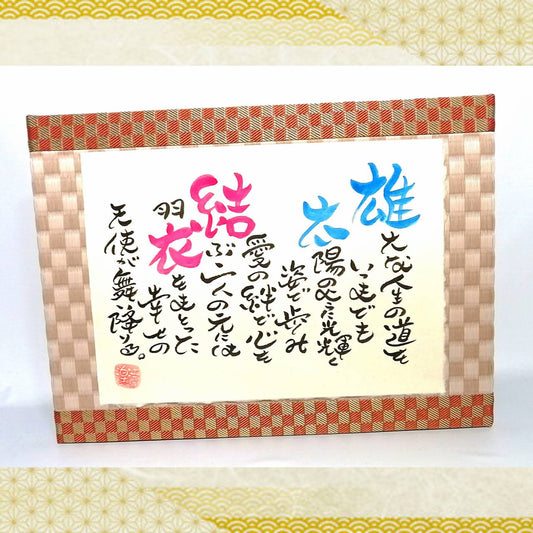 雄大な人生の道を
いつまでも
太陽の様に光輝く
姿で歩み
愛の絆で心を
結ぶ二人の元には
羽衣をまとった
幸せの
天使が舞い降りる。